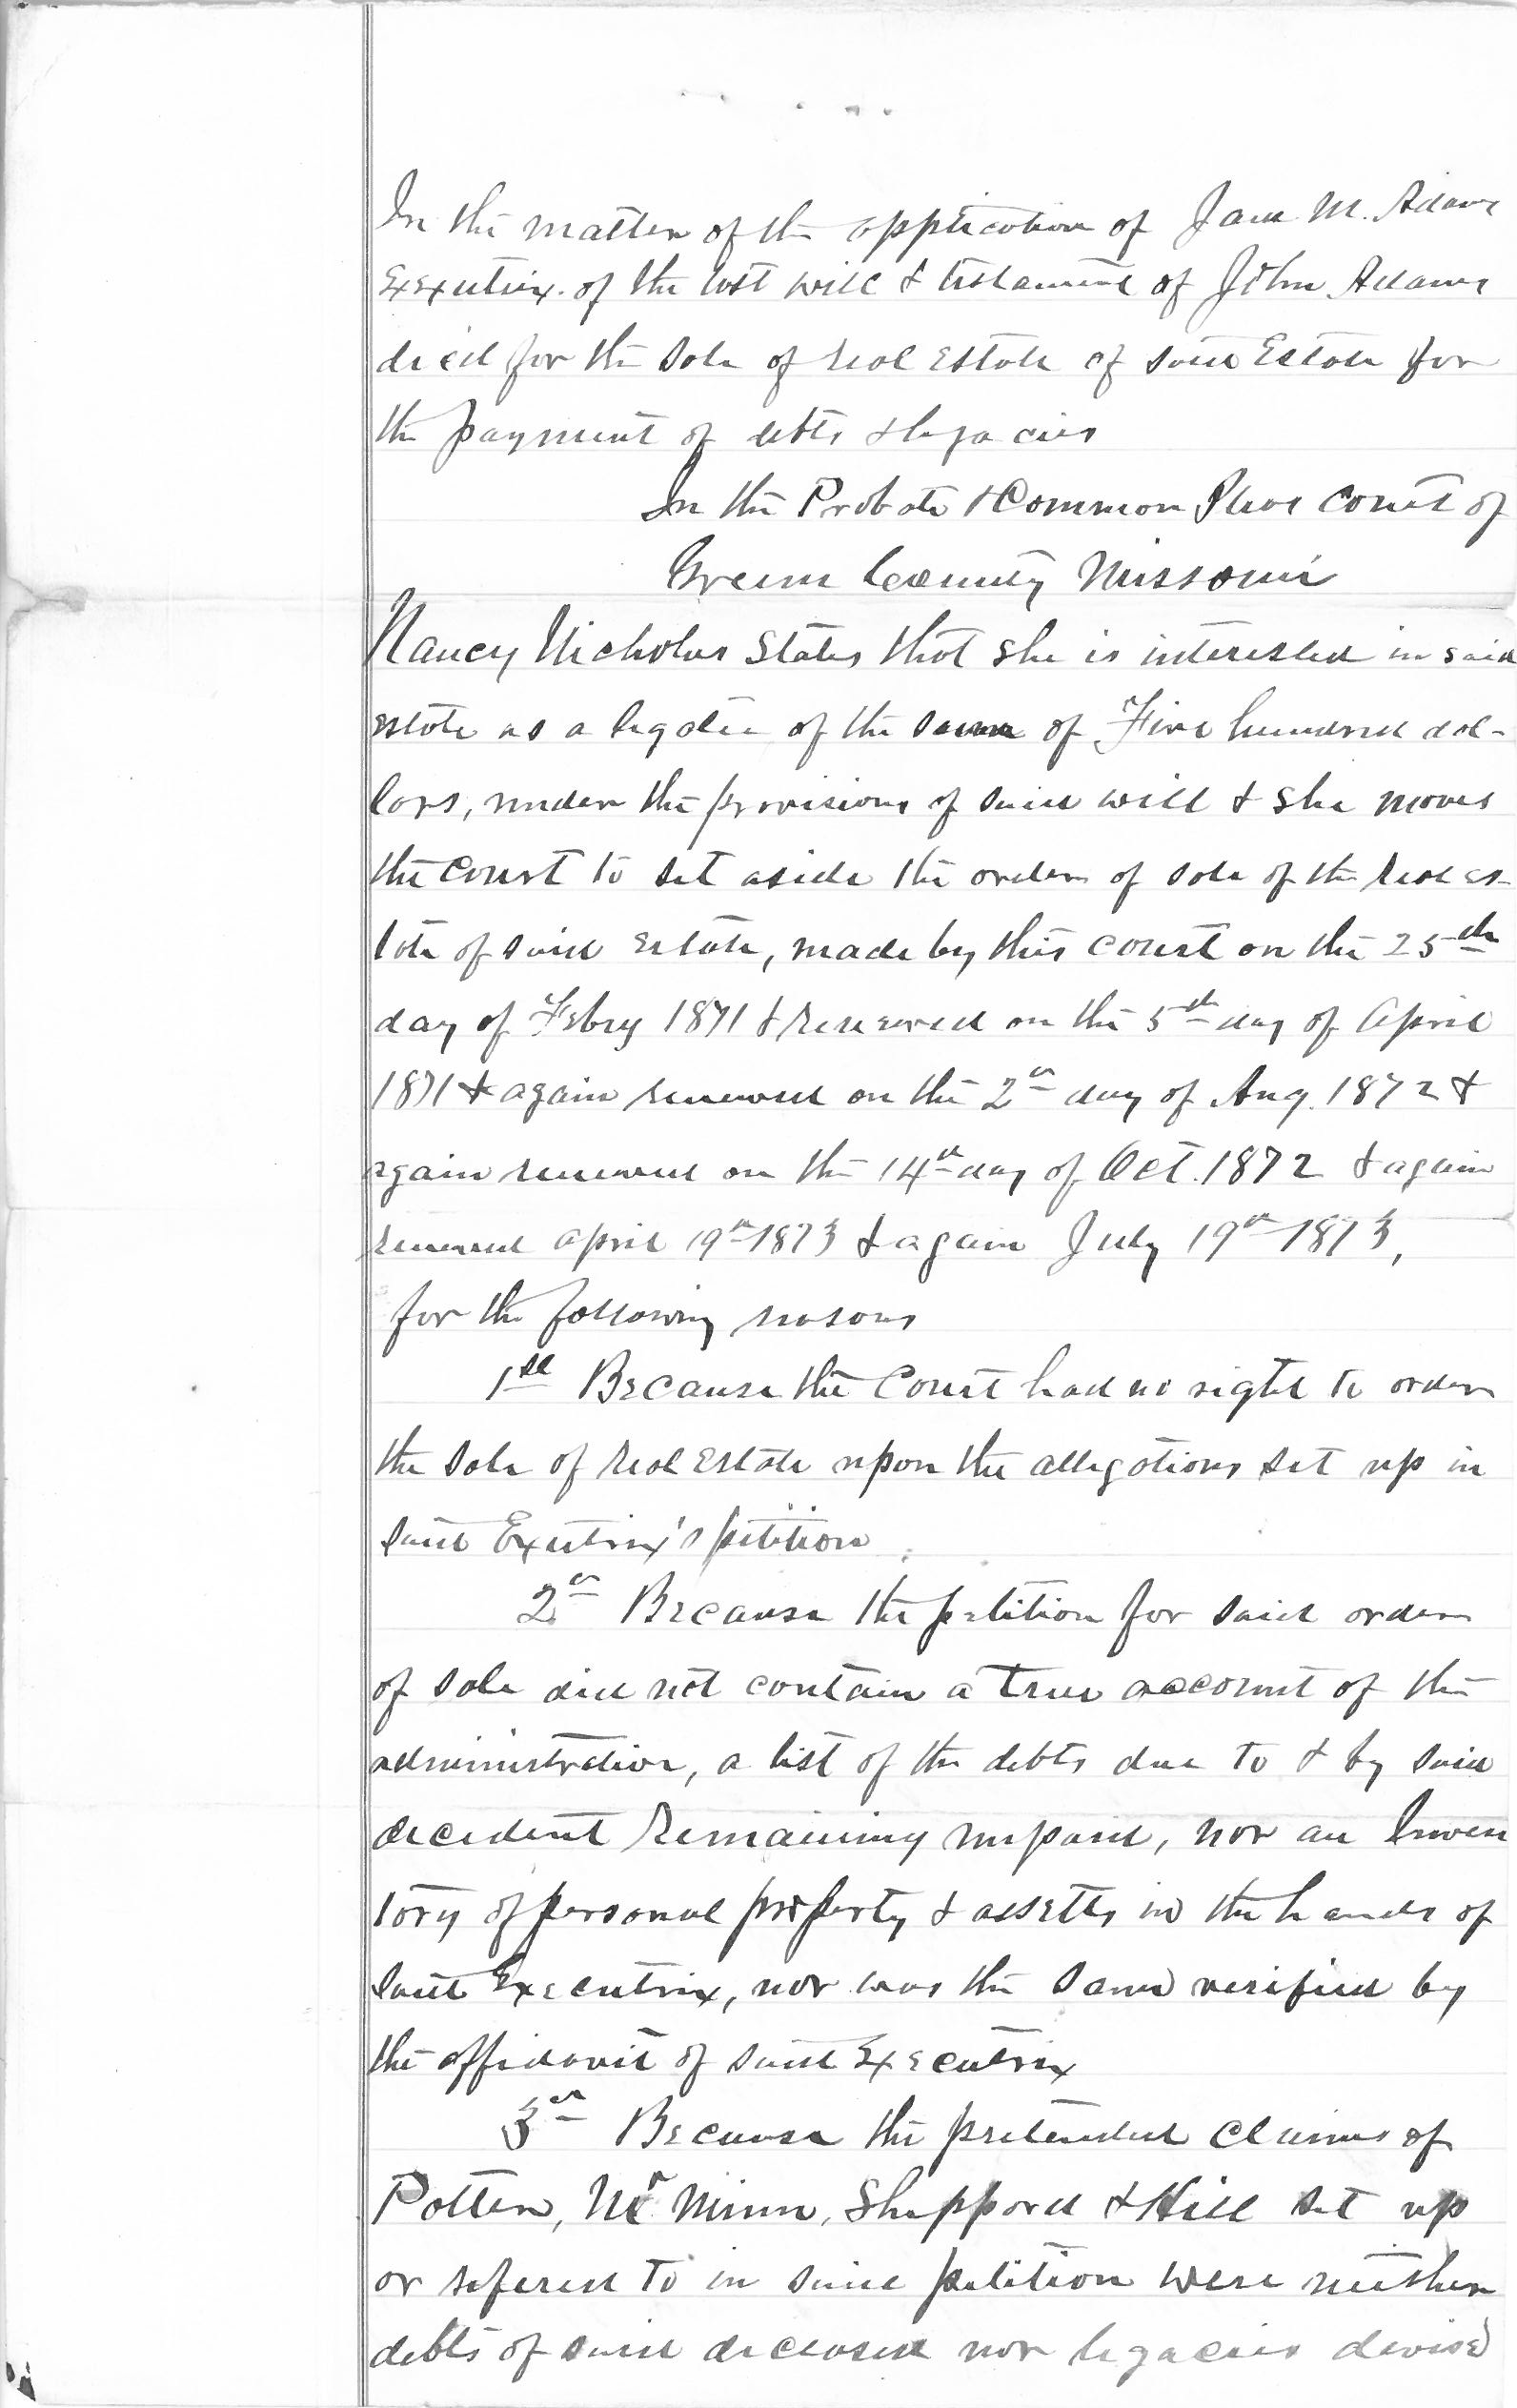 In the matter of the application of Jane M. Adams
Executrix. of the last will & testament of John Adams
dec'd for the sale of real Estate of said Estate for
the payment of debts & legacies
In the Probate & Common Pleas Court of
Greene County Missouri
Nancy Nicholas States that she is interested in said
estate as a legatee of the sum of Five hundred dol-
lars, under the provisions of said will & she moves
the Court to set aside the order of sale of the real es-
tate of said Estate, made by this Court on the 25th
day of Febry 1871 & renewed on the 5th day of April
1871 & again renewed on the 2d day of Aug. 1872 &
again renewed on the 14th day of Oct. 1872 & again
renewed April 19th 1873 & again July 19th 1873,
for the following reasons
1st Because the Court had no right to order
the sale of real Estate upon the allegations set up in
said Exutrix's petition
2d Because the petition for said order
of sale did not contain a true account of the
administration, a list of the debts due to & by said
decedent remaining unpaid, nor an Inven
tory of personal property & assetts in the hands of
said Executrix, nor was the same verified by
the affidavit of said Executrix
3d Because the pretended claims of
Potter, Mc Minn, Sheppard & Hill set up
or refered to in said petition were neither
debts of said deceased nor legacies devised